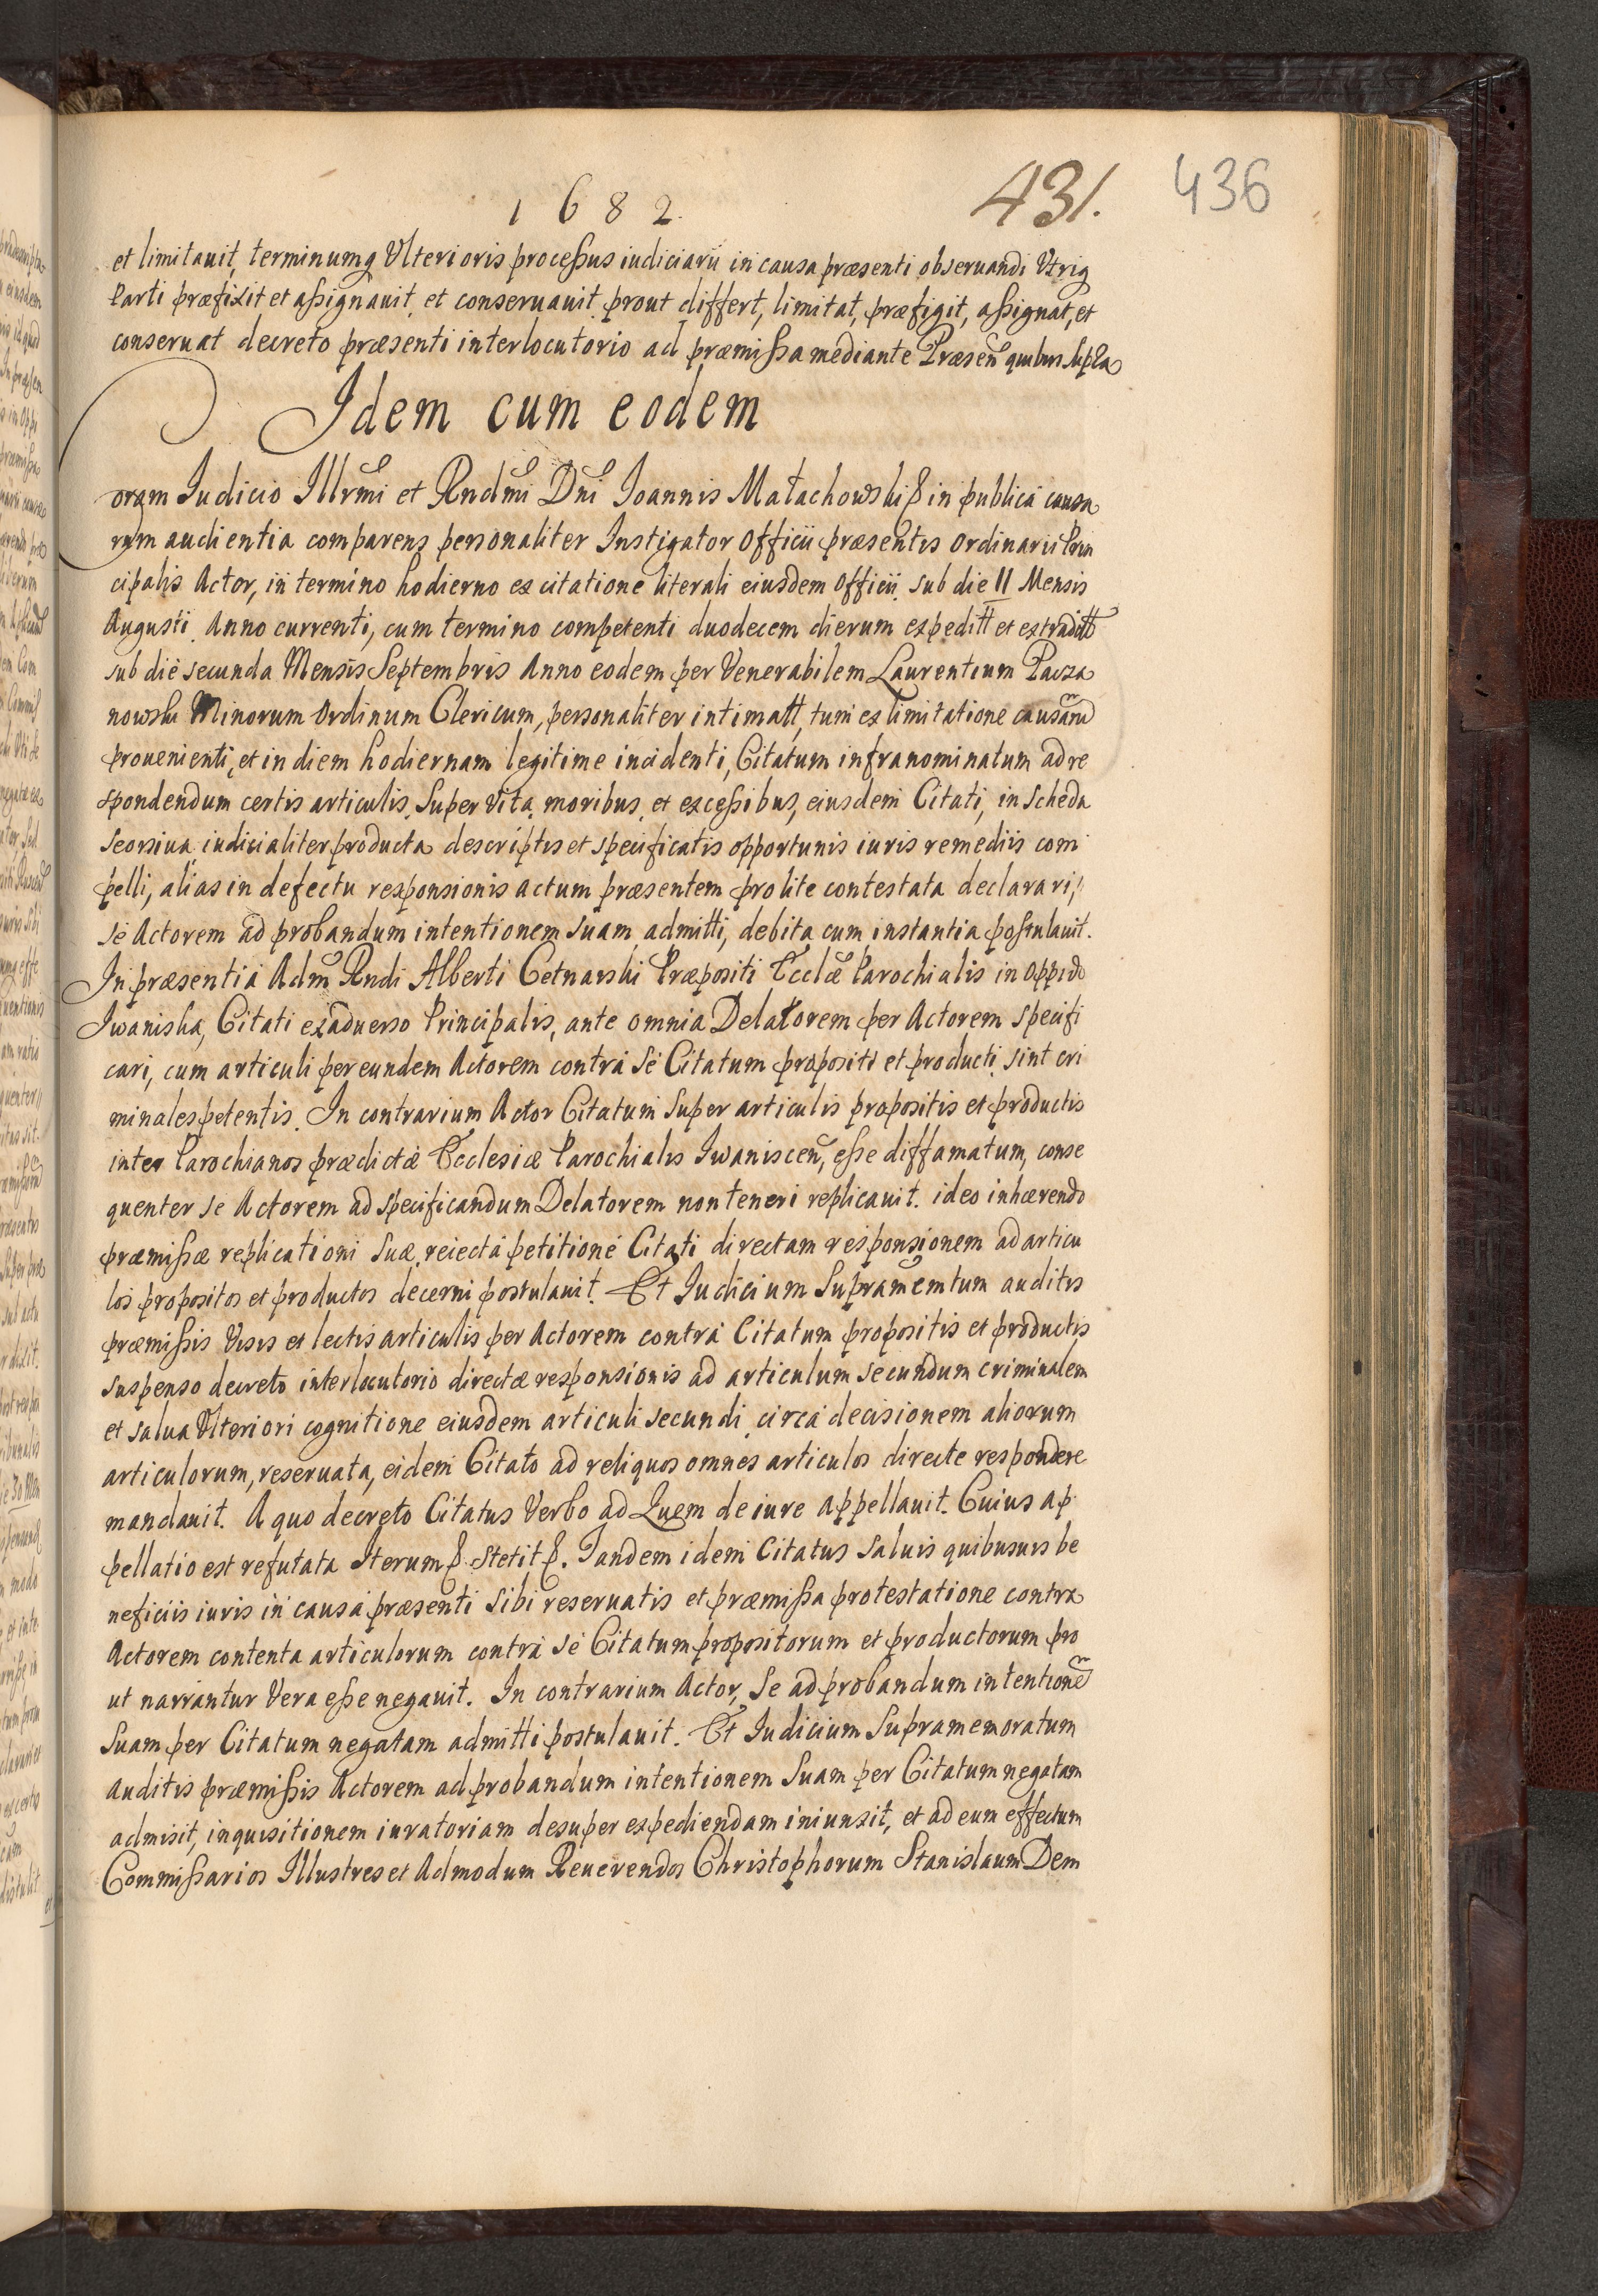 1682.
431.
436
et limitauit, terminumq Ulterioris processus iudiciarii in causa præsenti obseruandi Vtriq
Parti præfixit et assignauit, et conseruauit prout differt, limitat, præfigit, assignat, et
conseruat decreto præsenti interlocutorio ad præmissa mediante Præsen quibus supra
Idem cum eodem
Coram Iudicio Illrmi et Rndmi Dni Ioannis Małachowski in publica causa
rum audientia comparens personaliter Instigator Officii præsentis ordinarii Prin
cipalis Actor, in termino hodierno ex citatione literali eiusdem Officii, sub die 11 Mensis
Augusti Anno currenti, cum termino competenti duodecem dierum expeditt et extraditt
sub die secunda Mensis Septembris Anno eodem per Venerabilem Laurentium Pacza
nowski Minorum Ordinum Clericum, personaliter intimatt, tum ex limitatione causarum
prouenienti, et in diem hodiernam legitime incidenti, Citatum infranominatum ad re
spondendum certis articulis, super vita, moribus, et excessibus, eiusdem Citati, in scheda
seorsiua iudicialiter producta descriptis et specificatis opportunis iuris remediis com
pelli, alias in defectu responsionis actum præsentem pro lite contestata declarari,
se Actorem ad probandum intentionem suam admitti, debita cum instantia postulauit.
In præsentia Adm Rndi Alberti Cetnarski Præpositi Ecclæ Parochialis in oppido
Iwaniska, Citati ex aduerso Principalis, ante omnia Delatorem per Actorem specifi
cari, cum articuli per eundem Actorem contra se Citatum propositi et producti, sint cri
minales petentis. In contrarium Actor Citatum super articulis propositis et productis
inter Parochianos prædictæ Ecclesiæ Parochialis Iwaniscen, esse diffamatum, conse
quenter se Actorem ad specificandum Delatorem non teneri replicauit. ideo inhærendo
præmissæ replicationi suæ, reiecta petitione Citati directam responsionem ad articu
los propositos et productos decerni postulauit. Et Iudicium Supramemtum auditis
præmissis visis et lectis articulis per Actorem contra Citatum propositis et productis
suspenso decreto interlocutorio directæ responsionis ad articulum secundum criminalem
et salua Ulteriori cognitione eiusdem articuli secundi circa decisionem aliorum
articulorum, reseruata, eidem Citato ad reliquos omnes articulos directe respondere
mandauit. A quo decreto Citatus Verbo ad Quem de iure appellauit. Cuius ap
pellatio est refutata Iterum Stetit. Tandem idem Citatus saluis quibusuis be
neficiis iuris in causa præsenti sibi reseruatis et præmissa protestatione contra
Actorem contenta articulorum contra se Citatum propositorum et productorum pro
ut narrantur Vera esse negauit. In contrarium Actor, se ad probandum intentione
suam per Citatum negatam admitti postulauit. Et Iudicium Supramemoratum
auditis præmissis Actorem ad probandum intentionem suam per Citatum negatam
admisit, inquisitionem iuratoriam desuper expediendam iniunxit, et ad eum effectum
Commissarios Illustres et Admodum Reuerendos Christophorum Stanislaum Dem